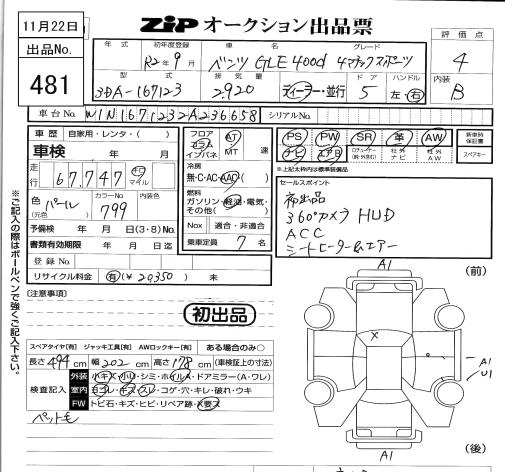 11月22日
出品No.
481
ZIPオークション出品票
評価点
4
内装
B
年式 初年度登録 車名 グレード
R2年9月 ベンツ GLE400d 4マチックスポーツ
型式 排気量 ドア ハンドル
3DA-167123 2,920 ディーラー・並行 5 左・右
車台No. W1N1671232A236658 シリアルNo.
車歴 自家用・レンタ・( )
車検 年 月
走行 67,747 キロ マイル
色(元色) パール カラーNo. 799 内装色
予備検 年 月 日(3・8)No.
書類有効期限 年 月 日迄
登録No.
リサイクル料金 有(¥20350) 未
フロア フラム インパネ
AT MT 速
冷房
無・C・AC・AAC
燃料
ガソリン・軽油・電気・その他( )
Nox 適合・非適合
乗車定員 7 名
PS PW SR 革 AW
ナビ エアB 社外ナビ 社外AW
新車時保証書
スペアキー
※上記太枠内は標準装備品
セールスポイント
初出品
360°カメラ HUD
ACC
シートヒーター&エアー
※ご記入の際はボールペンで強くご記入下さい。
(注意事項)
初出品
スペアタイヤ[有] ジャッキ工具[有] AWロックキー[有] ある場合のみ〇
長さ 494cm 幅 202cm 高さ 178cm (車検証上の寸法)
検査記入
外装 小キズ・小U・シミ・ホイルA・ドアミラー(A・ワレ)
室内 ヨゴレ・キズ・スレ・コゲ・穴・キレ・破れ・ウキ
FW トビ石・キズ・ヒビ・リペア跡・X要ス
ペット毛
(前)
A1
X
A1
U1
A1
(後)